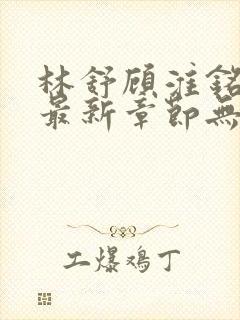 林舒顾淮铭
最新章節無
工爆鸡丁